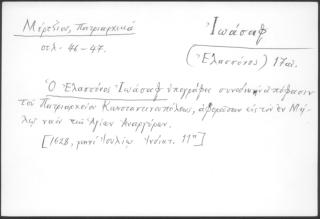 Μέρτζιου, Πατριαρχικά
σελ. 46-47.
Ἰωάσαφ
(Ἐλασσόνος) 17αι.
Ὁ Ἐλασσόνος Ἰωάσαφ ὑπογράφει συνοδικήν ἀπόφασιν
τοῦ Πατριαρχείου Κωνσταντινουπόλεως, ἀφορῶσαν εἰς τὸν ἐν Μή-
λῳ ναὸν τῶν Ἁγίων Ἀναργύρων.
[1628, μηνὶ Ἰουλίῳ. Ἰνδικτ. 11η]